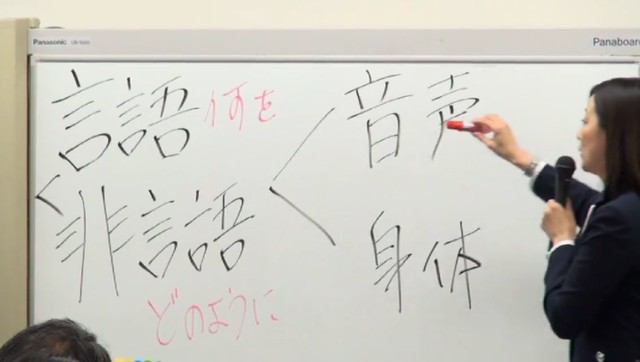 Panasonic
Panaboard
言語 何を
非言語
どのように
音声
身体